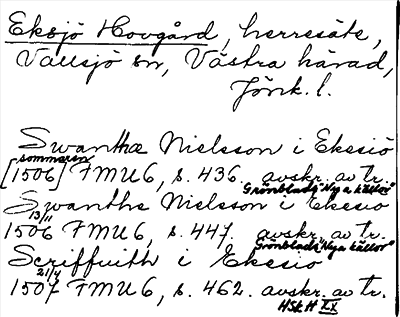 Eksjö Hovgård, herresäte,
Vallsjö sn, Västra härad,
Jönk. l.
Swanthæ Nielsson i Eksiö
sommaren
[1506] FMU6, s. 436. avskr. av tr.
Grönblads "Nya källor"
Swantha Nielsson i Ekesiö
13/11
1506 FMU6, s. 447. avskr. av tr.
Grönblads "Nya källor"
Scriffuith i Ekesiö
21/4
1507 FMU6, s. 462. avskr. av tr.
HSkH XX